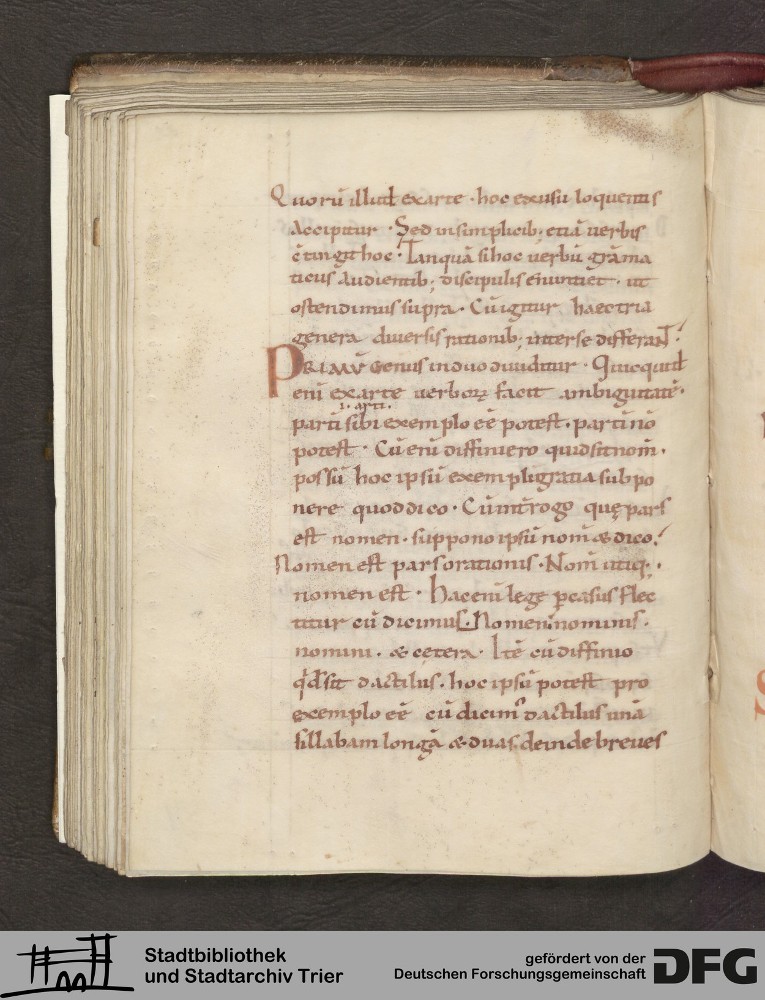 Quorũ illud exarte · hoc exusu loquentis
accipitur · Sed insimplicib; etiã uerbis
c̃tingit hoc · Tanquã sihoc uerbũ grãma
ticus audientib; discipulis enuntiet · ut
ostendimus supra · Cũ igitur haectria
genera diuersis rationib; interse differant ·
PRIMũ Genus induo diuiditur · Quicquid
eni exarte uerborꝝ facit ambiguitatẽ ·
.i. arti.
parti sibi exemplo eẽ potest · parti nõ
potest · Cũ eni diffiniero quid sit nom̃ ·
possũ hoc ipsũ exempli gratia subpo
nere quod dico · Cũ int̃rogo quę pars
est nomen · suppono ipsũ nom̃ & dico ·
Nomen est pars orationis · Nom̃ utiq; ·
nomen est · haceni lege ꝑcasus flec
titur cũ dicimus · Nomen nominis ·
nomini · & cetera · Itẽ cũ diffinio
qd̃ sit dactilus · hoc ipsũ potest pro
exemplo eẽ cũ dicimꝰ dactilus unã
sillabam longã & duas deinde breues
Stadtbibliothek
und Stadtarchiv Trier
gefördert von der
Deutschen Forschungsgemeinschaft
DFG